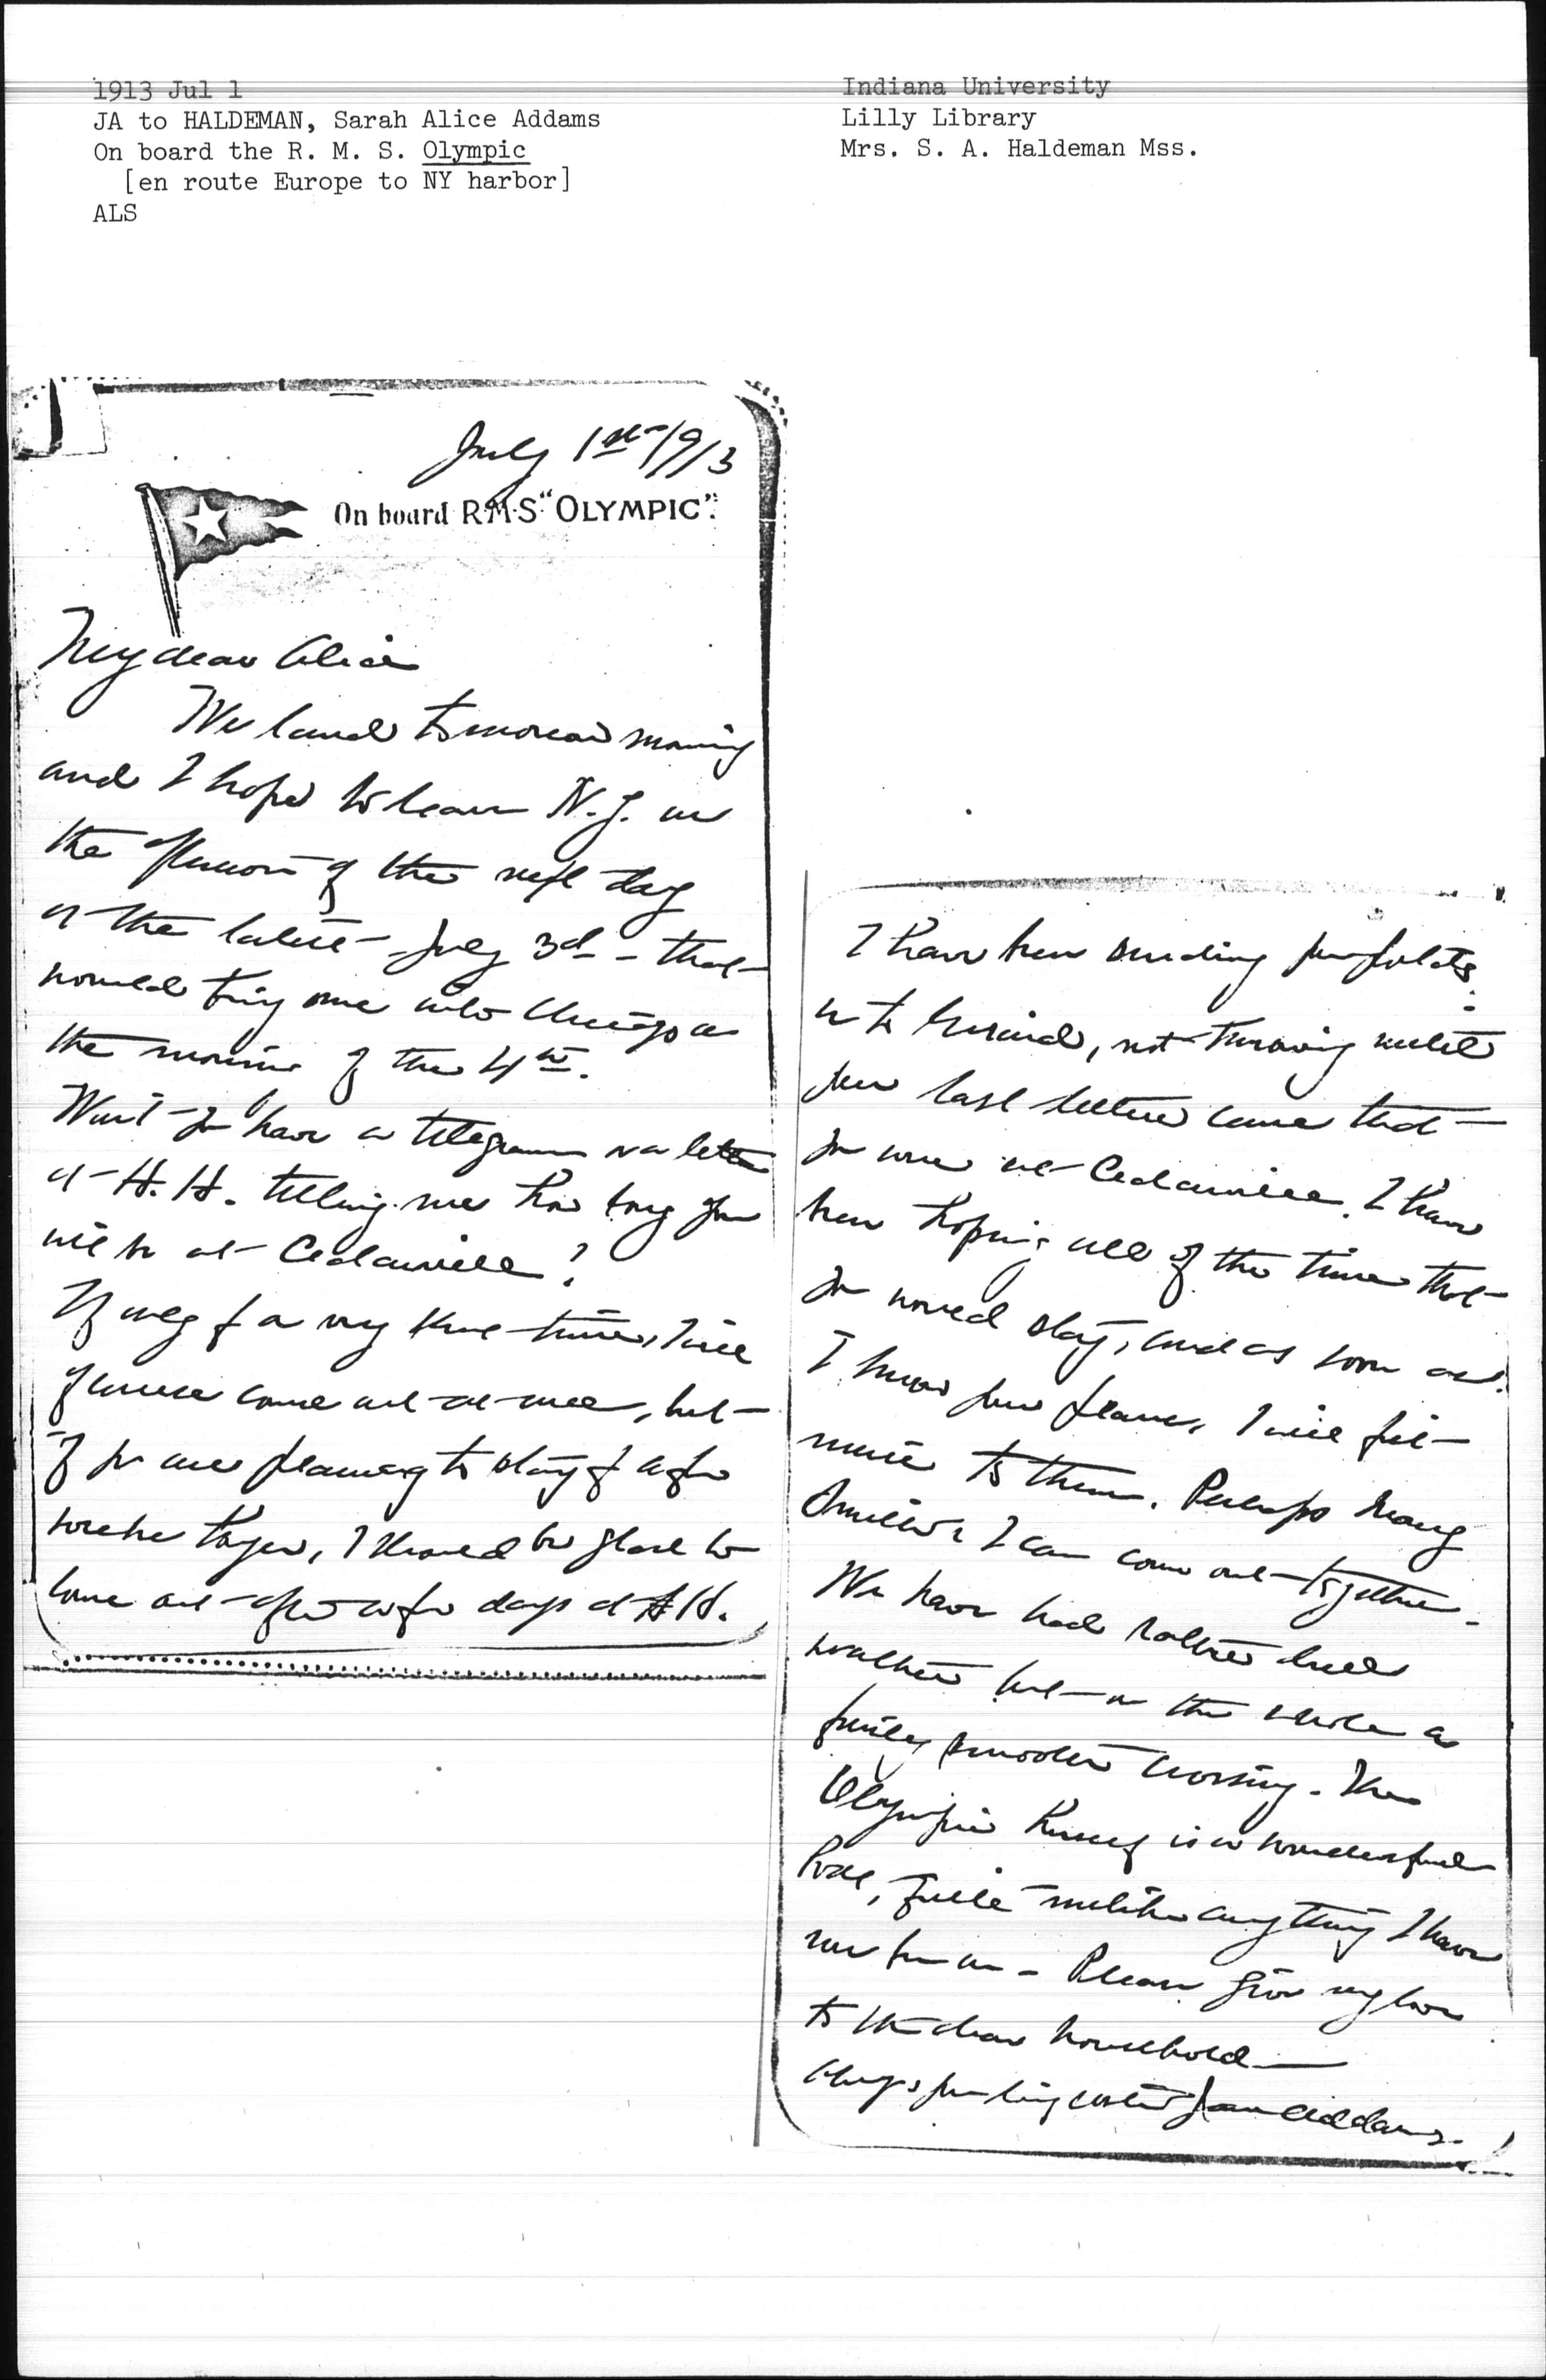 1913 Jul 1
JA to HALDEMAN, Sarah Alice Addams
On board the R. M. S. Olympic
[en route Europe to NY harbor]
ALS
Indiana University
Lilly Library
Mrs. S. A. Haldeman Mss.
July 1st 1913
On board R.M.S. "OLYMPIC".
My dear Alice
We land tomorrow morning
and I hope to leave N.Y. on
the afternoon of the next day
at the latest – July 3d – that
would bring me into Chicago on
the morning of the 4th.
Won't you have a telegram or a letter
at H.H. telling me how long you
will be at Cedarville?
If only for a very short time, I will
of course come out at once, but
if you are planning to stay for a few
weeks longer, I should be glad to
come out after a few days at H.H.
I have been sending
to Girard, not knowing until
your last letter came that
you were at Cedarville. I have
been hoping all of the time that
you would stay, and as soon as
I know your plans, I will fit
mine to them. Perhaps Mary
Smith & I can come out together.
We have had rather cold
weather but on the whole a
fairly smooth crossing. The
Olympic itself is a wonderful
boat, quite unlike anything I have
ever been on – Please give my love
to the dear household –
Always your loving sister Jane Addams.